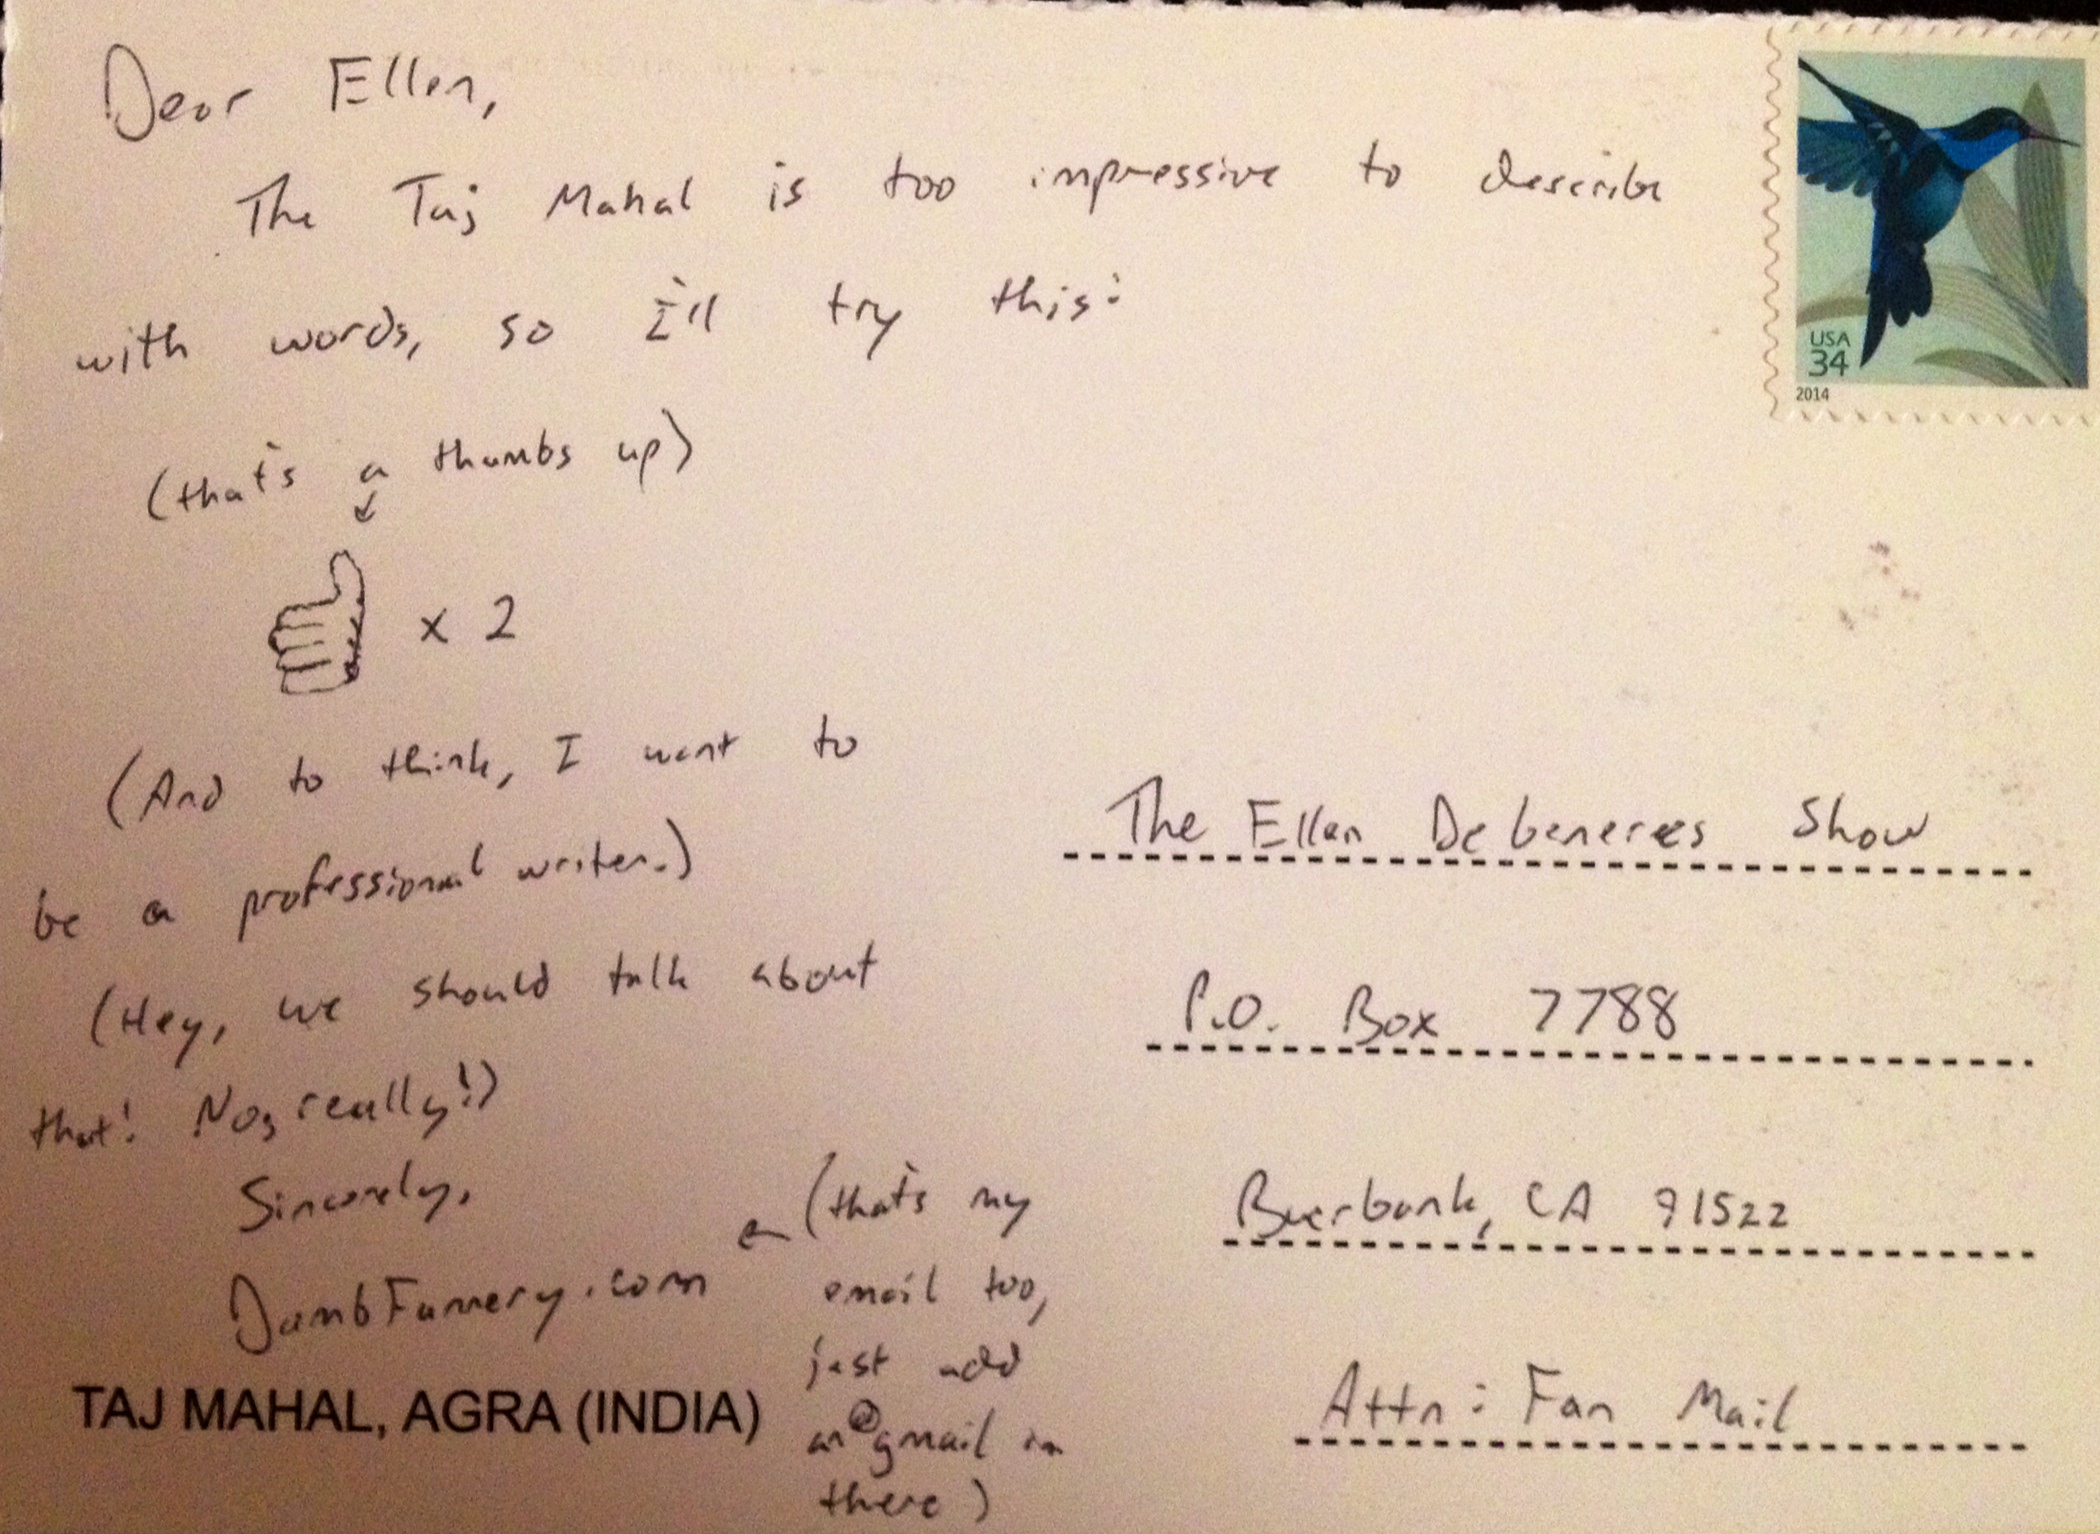 Dear Ellen,
The Taj Mahal is too impressive to describe
with words, so I'll try this:
(that's a thumbs up)
x 2
(And to think, I want to
be a professional writer.)
(Hey, we should talk about
that! No, really!)
Sincerely,
DumbFunnery.com
(that's my
email too,
just add
an @gmail in
there)
TAJ MAHAL, AGRA (INDIA)
USA
34
2014
The Ellen Degeneres Show
P.O. Box 7788
Buerbank, CA 91522
Attn: Fan Mail